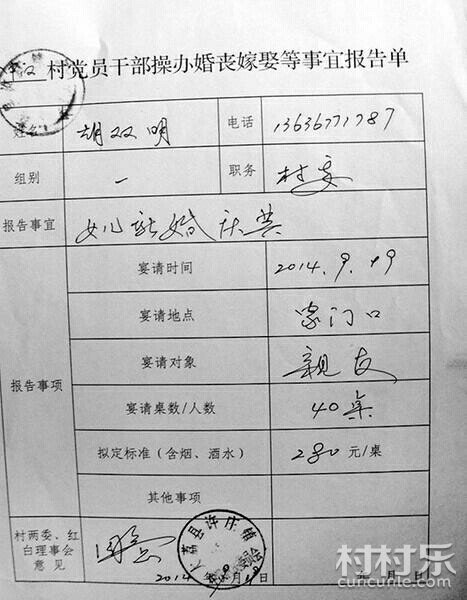 村党员干部操办婚丧嫁娶等事宜报告单
姓名 胡双明 电话 13636771787
组别 一 职务 村委
报告事宜 女儿结婚庆典
报告事项
宴请时间 2014.9.19
宴请地点 家门口
宴请对象 亲友
宴请桌数/人数 40桌
拟定标准(含烟、酒水) 280元/桌
其他事项
村两委、红
白理事会
意见
同意
县许庄镇
2014年9月19日
年 月 日
村村乐
cuncunle.com